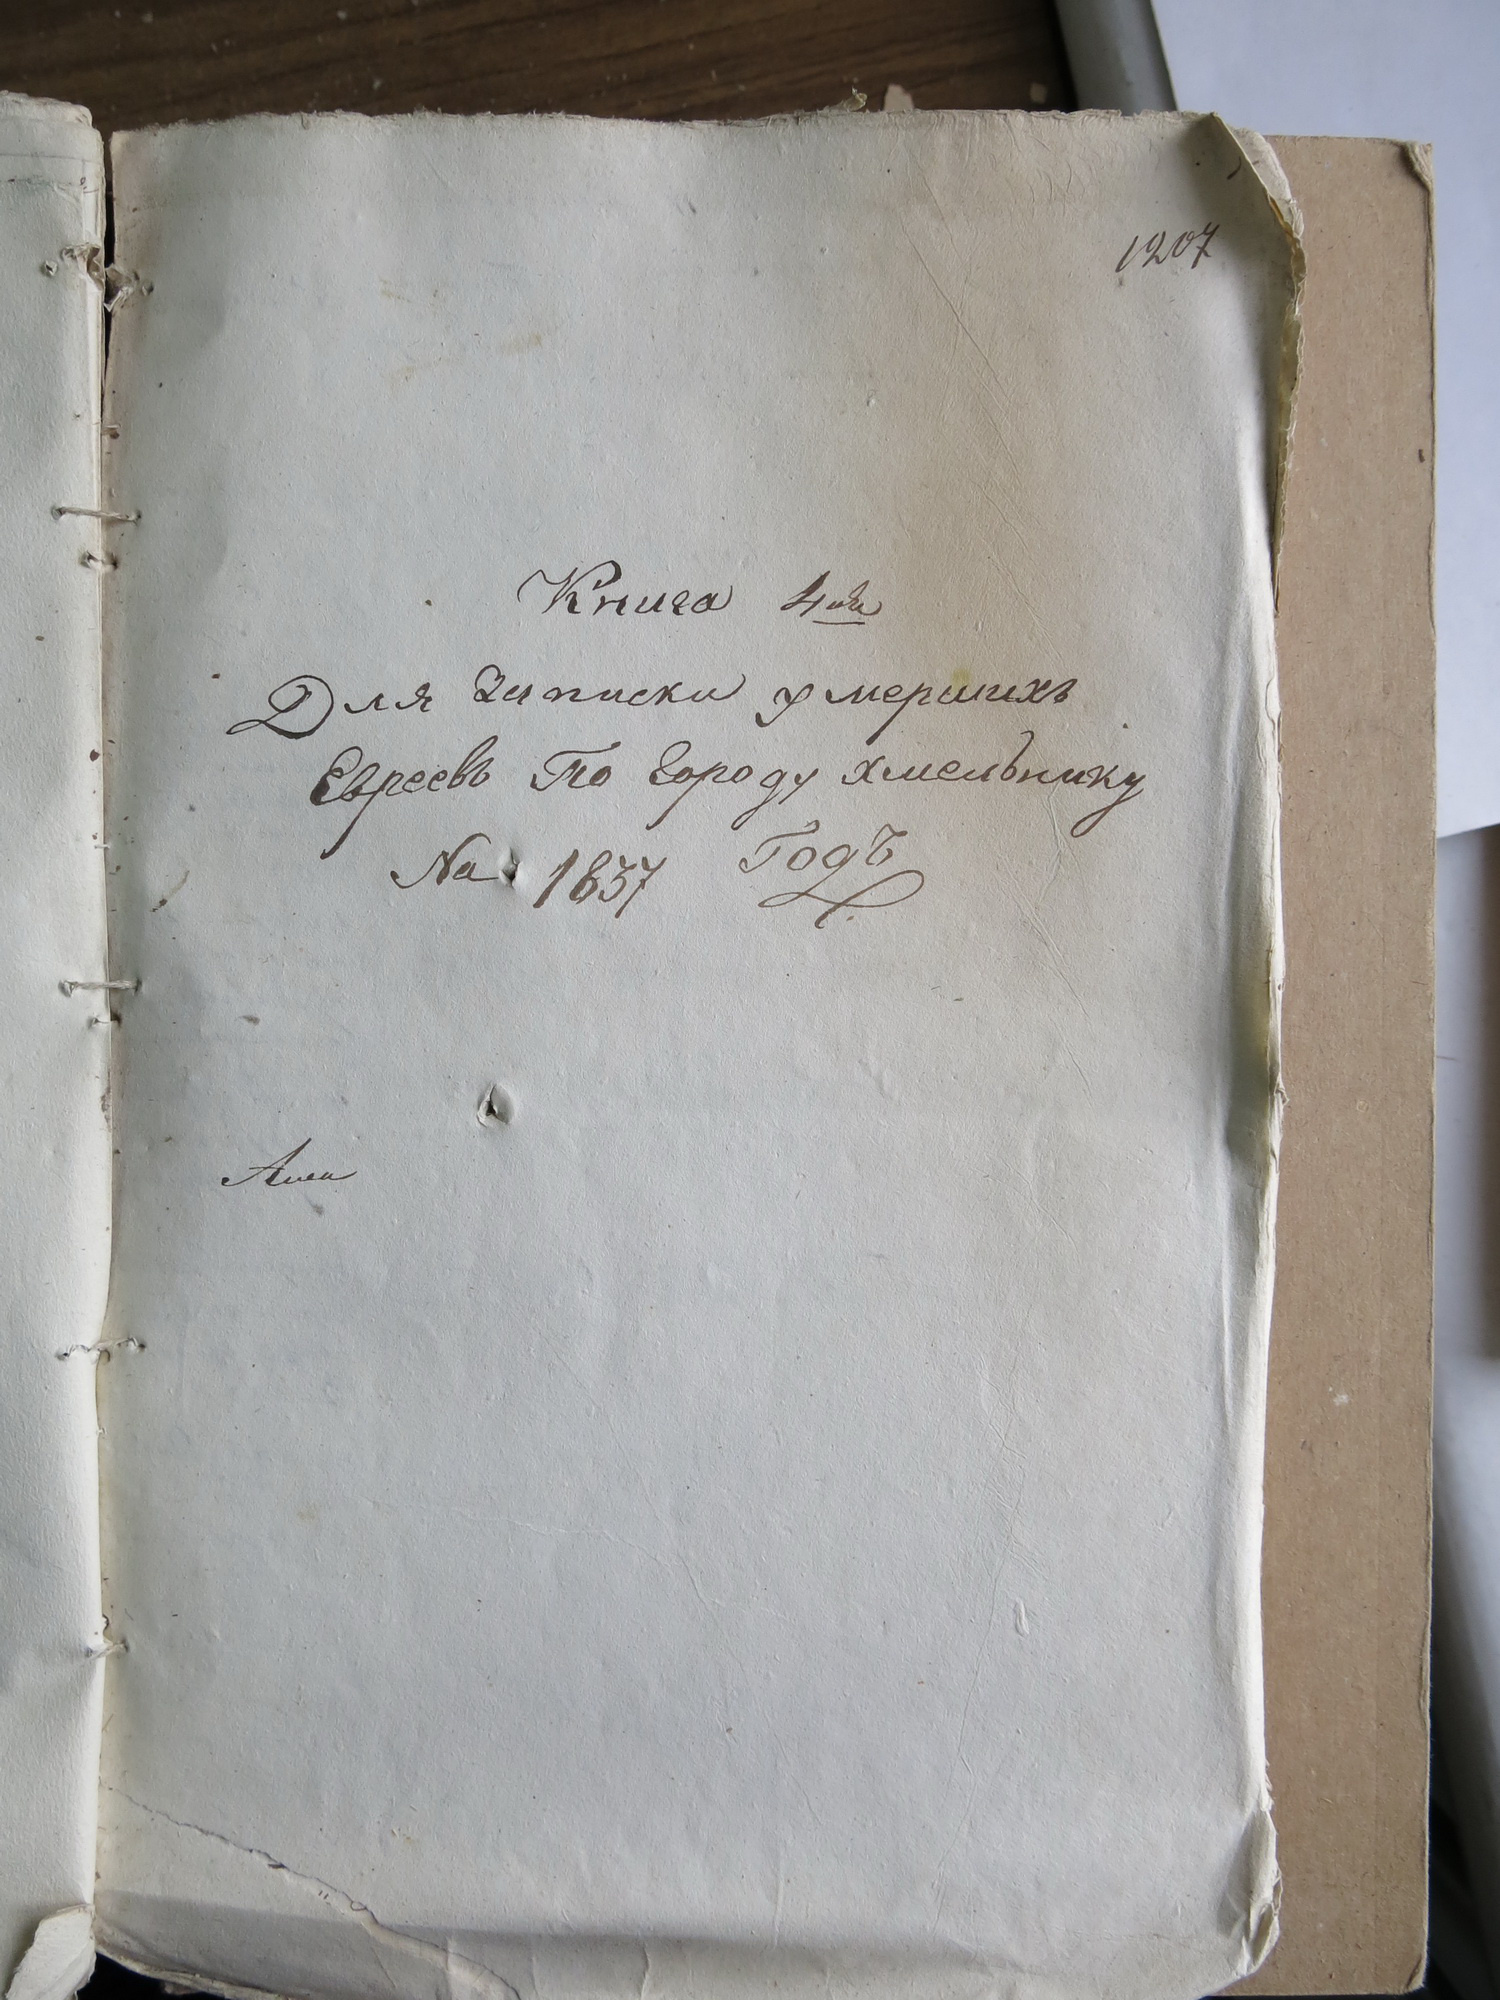 1207
Книга 4ая
Для Записки умершихъ
Евреевъ По городу Хмельнику
На 1837 Годъ